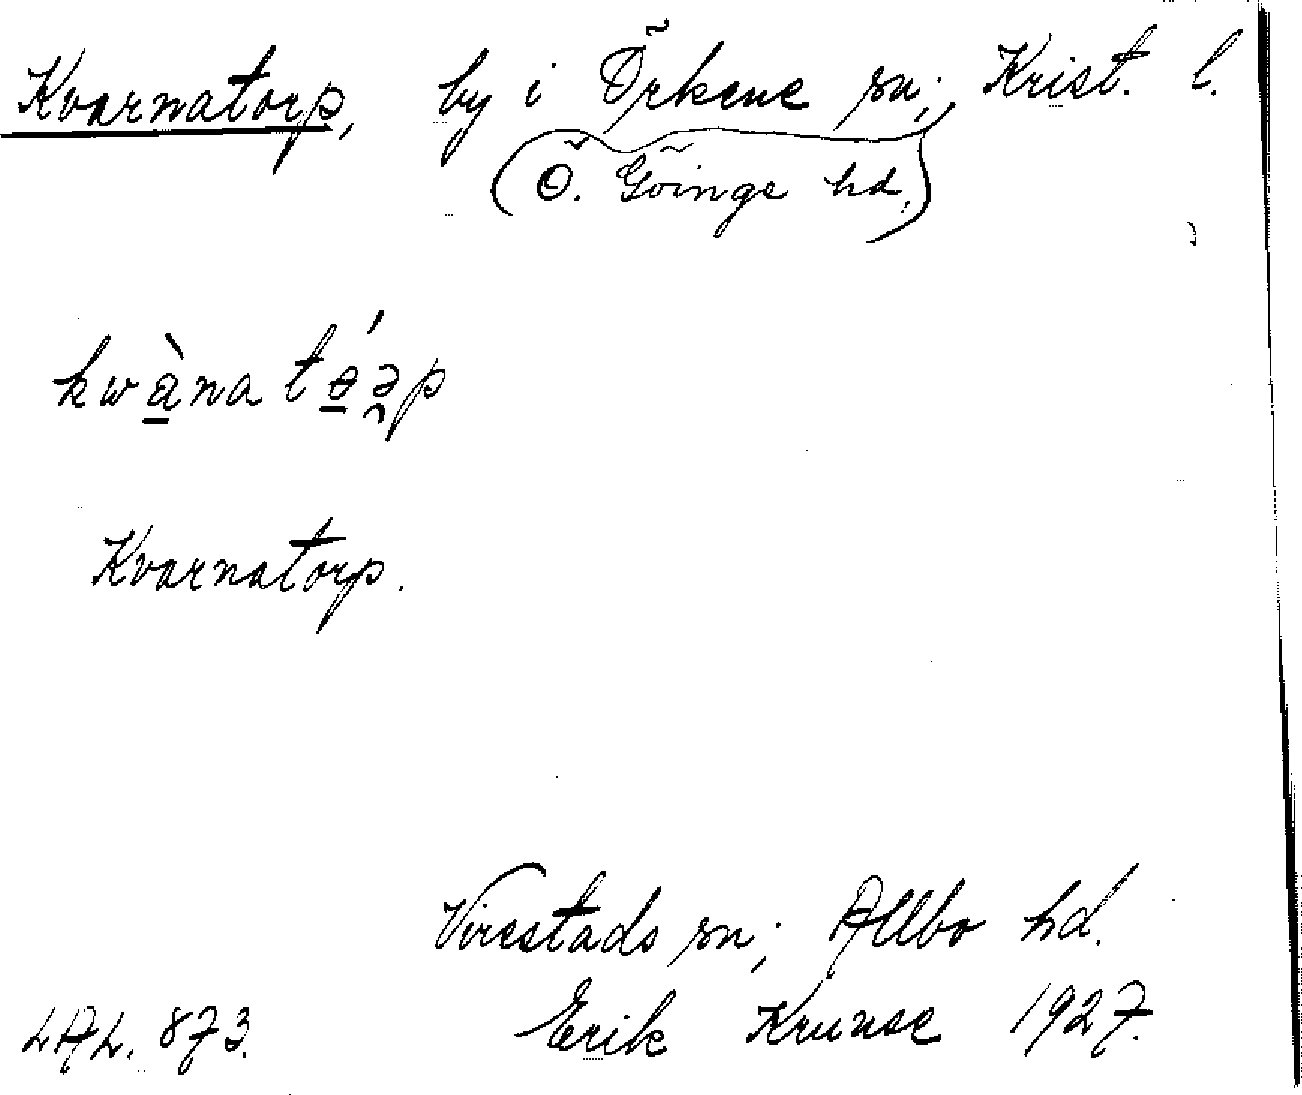 Kvarnatorp, by i Örkene sn; Krist. l.
(Ö. Göinge hd.)
kwàna tɵ́ə̯p
Kvarnatorp.
Virestads sn; Allbo hd.
LAL. 873. Erik Krunse 1927.